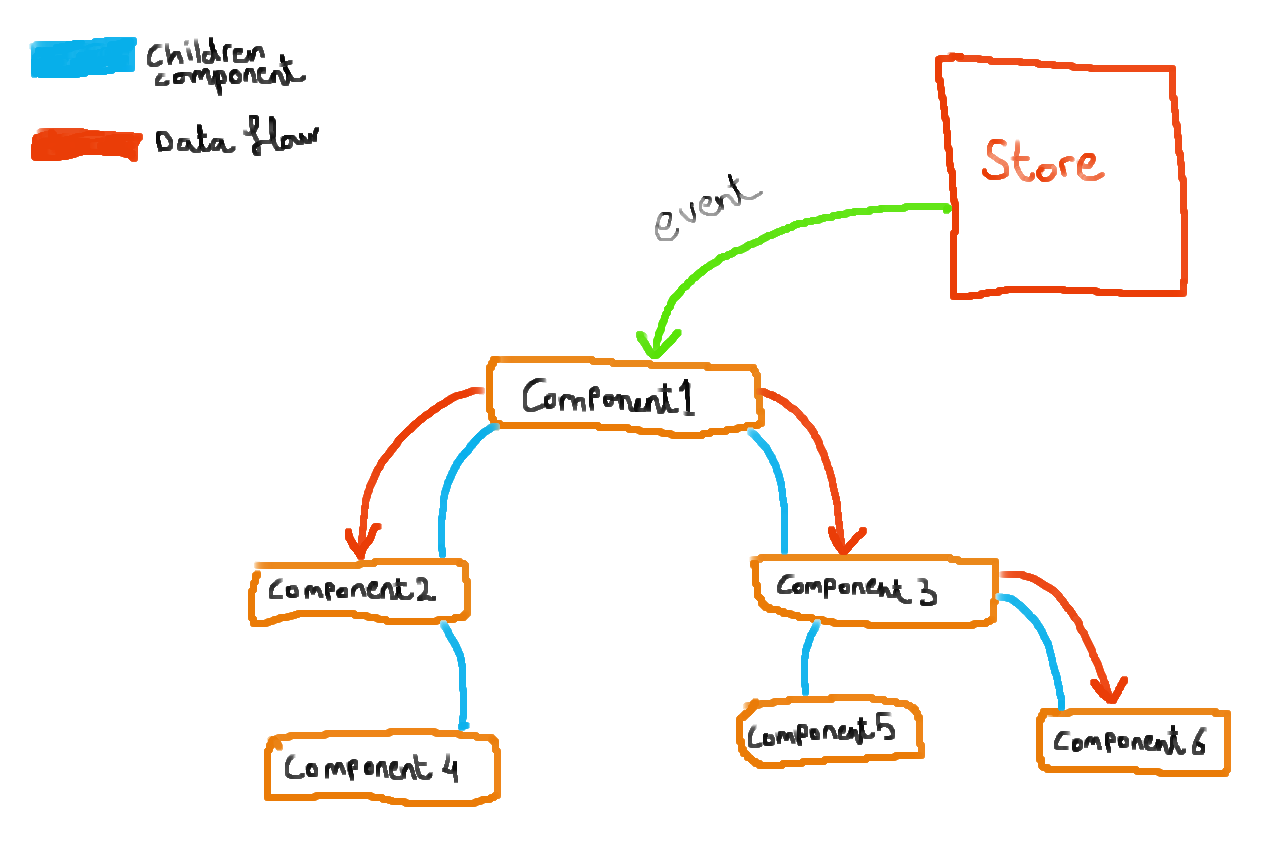 Children
component
Data flow
Store
event
Component1
Component2
Component 3
Component 4
Component5
Component 6